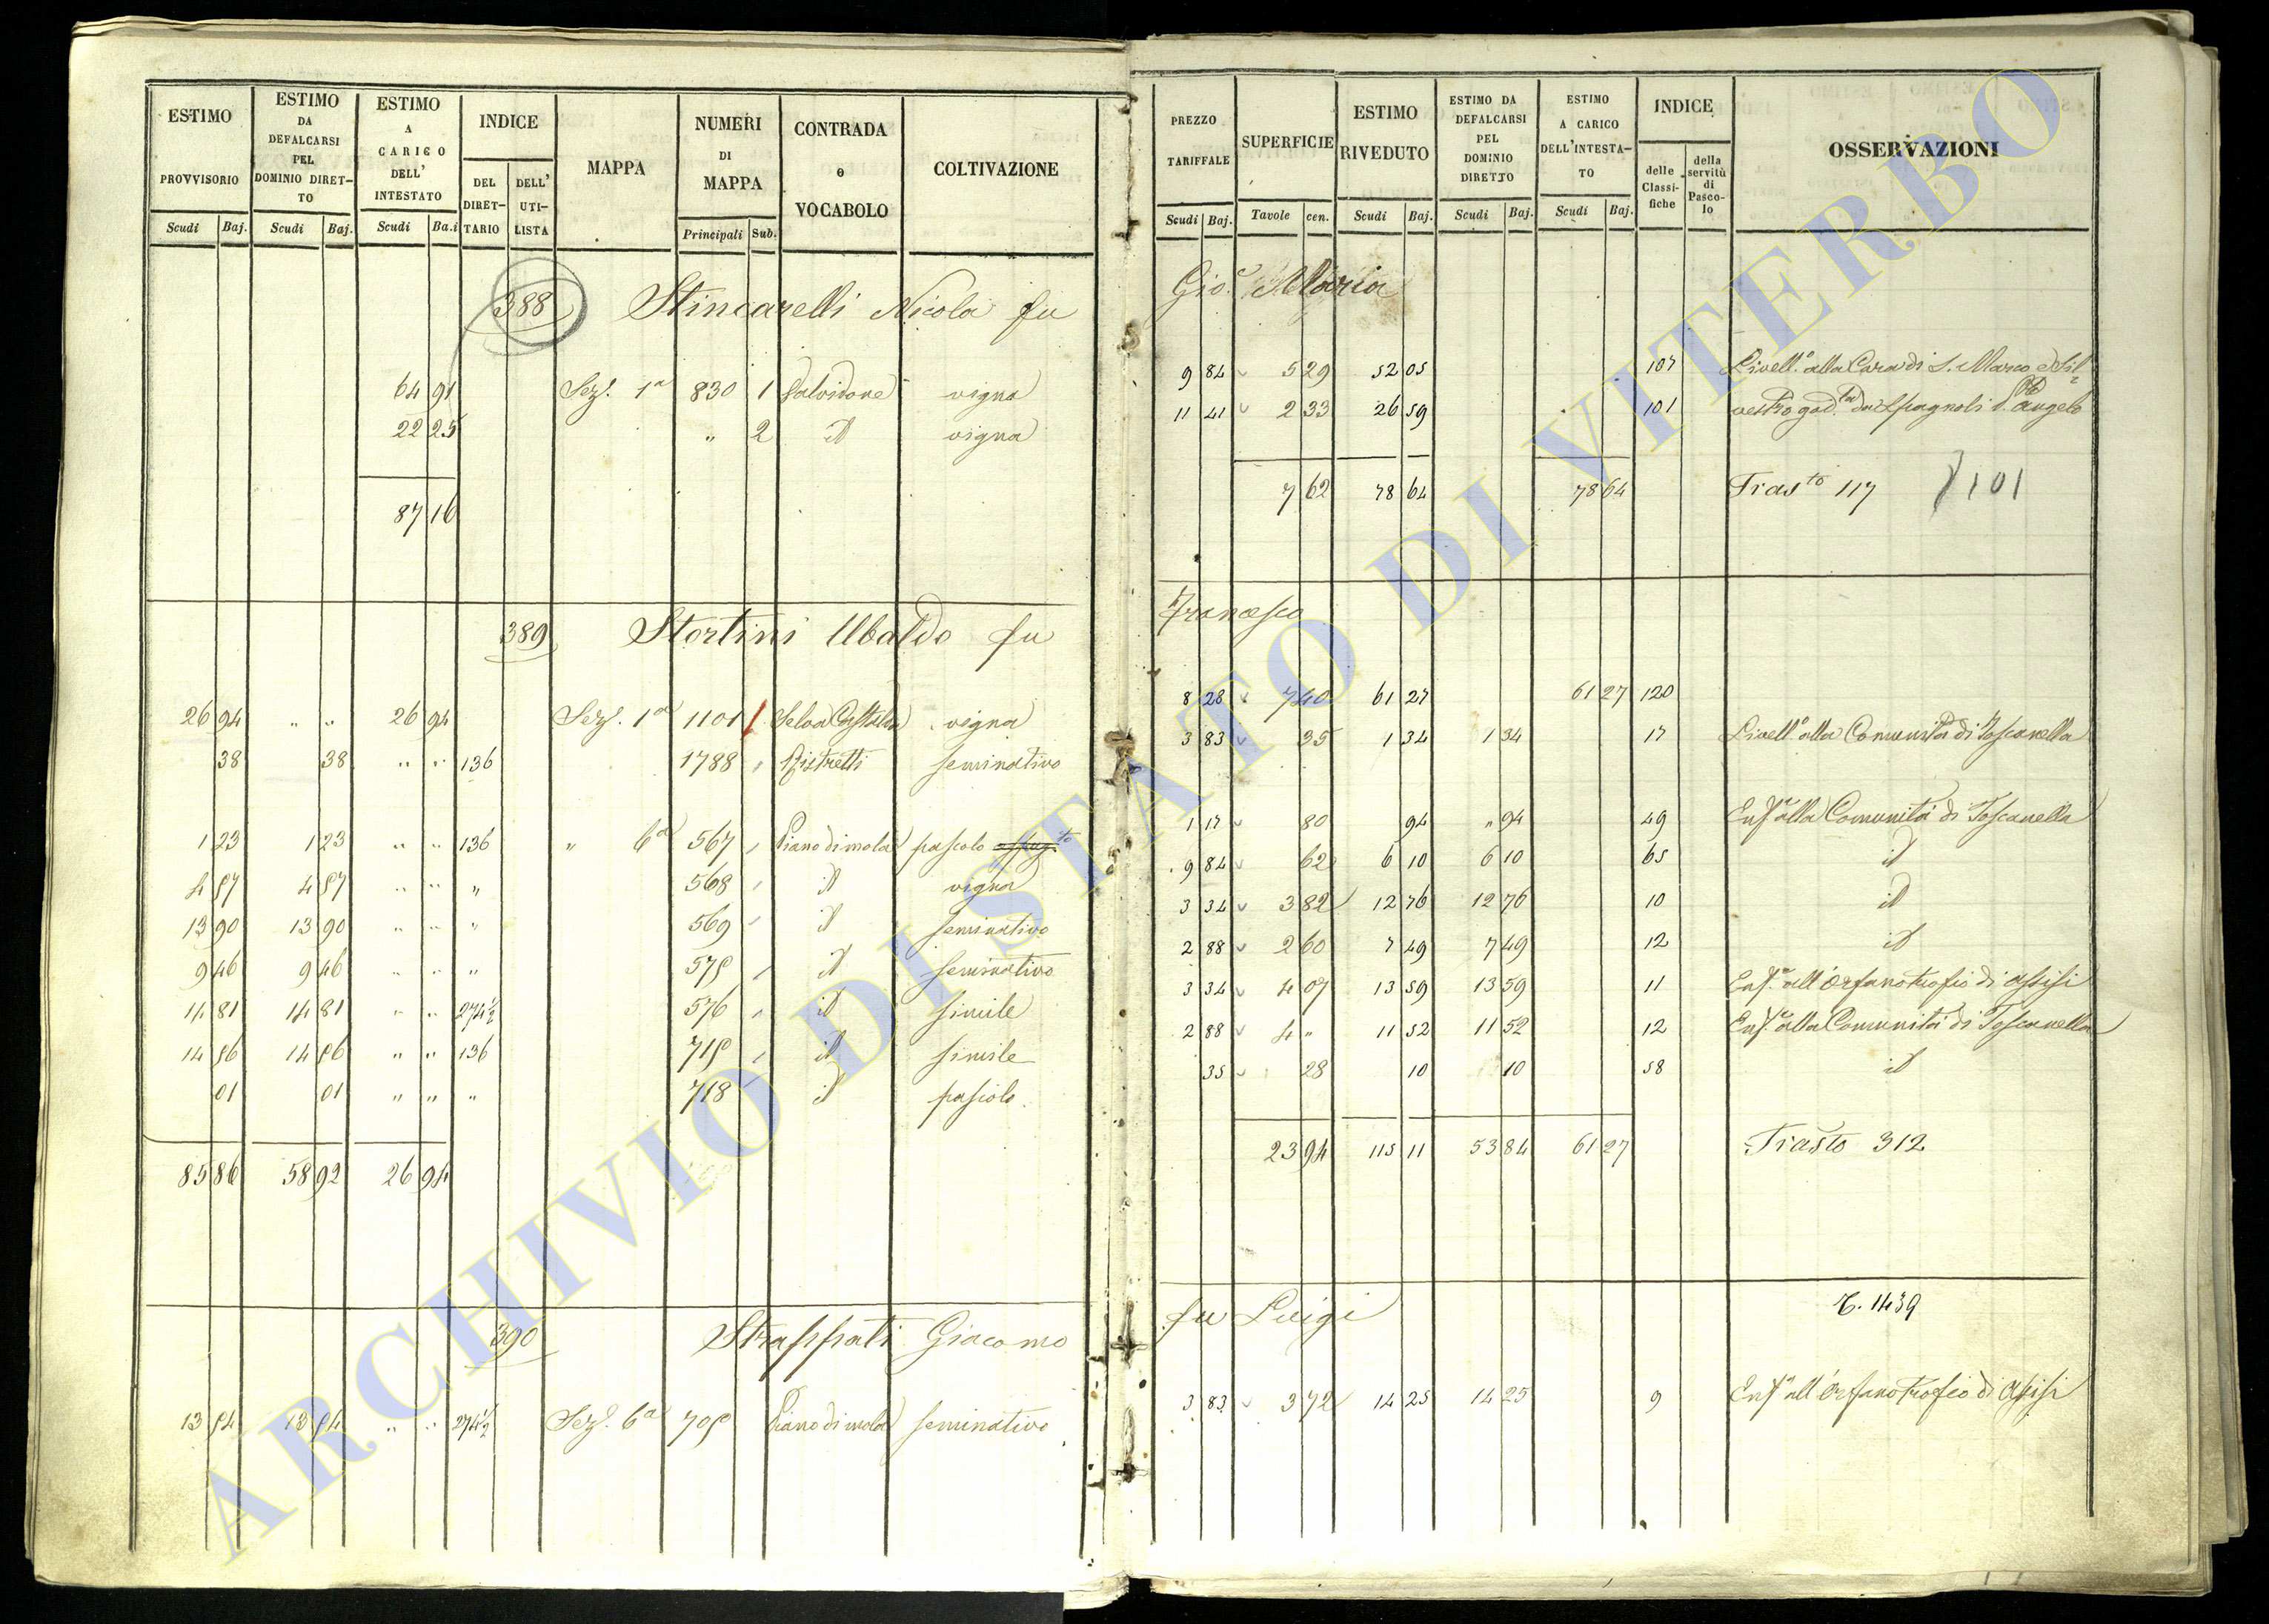 ESTIMO PROVVISORIO | ESTIMO DA DEFALCARSI PEL DOMINIO DIRETTO | ESTIMO A CARICO DELL' INTESTATO | INDICE | MAPPA | NUMERI DI MAPPA | CONTRADA o VOCABOLO | COLTIVAZIONE
DEL DIRETTARIO | DELL' UTILISTA
Scudi | Baj. | Scudi | Baj. | Scudi | Ba.i | Principali | Sub.
388 Stincarelli Nicola fu
64 91 Sez. 1a 830 1 vigna
22 25 " 2 id vigna
87 16
389 Stortini Ubaldo fu
26 94 " " 26 94 Sez. 1a 1101 vigna
38 38 " " 136 1788 Ristretti seminativo
1 23 1 23 " " 136 " 6a 567 Piano di mola pascolo
4 57 4 57 " " " 568 id vigna
13 90 13 90 " " " 569 id seminativo
9 46 9 46 " " " 575 id seminativo
14 81 14 81 " " 274½ 576 id simile
14 56 14 56 " " 136 715 id simile
01 01 " " " 718 id pascolo
85 86 58 92 26 94
390 Strappati Giacomo
13 54 13 54 " " 274½ Sez. 6a 705 Piano di mola seminativo
PREZZO TARIFFALE | SUPERFICIE | ESTIMO RIVEDUTO | ESTIMO DA DEFALCARSI PEL DOMINIO DIRETTO | ESTIMO A CARICO DELL'INTESTATO | INDICE | OSSERVAZIONI
delle Classifiche | della servitù di Pascolo
Scudi | Baj. | Tavole | cen. | Scudi | Baj. | Scudi | Baj. | Scudi | Baj.
Gio. Maria
9 84 5 29 52 05 107 Livello alla Cura di S. Marco e Sil=
11 41 2 33 26 59 101 vestro Spagnoli Angelo
7 62 78 64 78 64 Trasto 117 101
Francesco
8 28 7 40 61 27 61 27 120
3 83 35 1 34 1 34 17 Livello alla Comunità di Toscanella
1 17 80 94 " 94 49 Enfa alla Comunità di Toscanella
9 84 62 6 10 6 10 65 id
3 34 3 82 12 76 12 76 10 id
2 88 2 60 7 49 7 49 12 id
3 34 4 07 13 59 13 59 11 Enfa all'Orfanotrofio di Assisi
2 88 4 " 11 52 11 52 12 Enfa alla Comunità di Toscanella
35 28 10 10 58 id
23 94 115 11 53 84 61 27 Trasto 312
fu Luigi T. 1439
3 83 3 72 14 25 14 25 9 Enfa all'Orfanotrofio di Assisi
ARCHIVIO DI STATO DI VITERBO